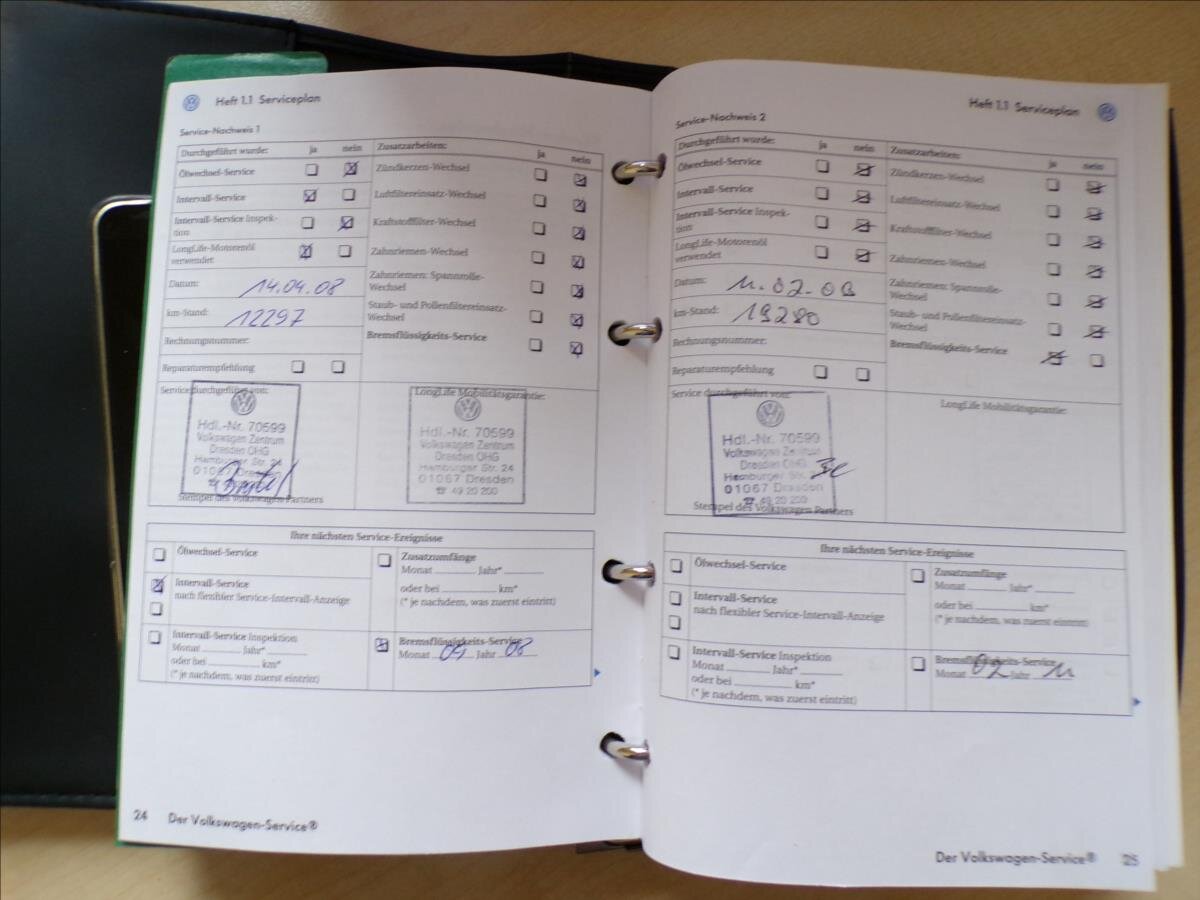 Heft 1.1 Serviceplan
Service-Nachweis 1
Durchgeführt wurde: ja nein
Ölwechsel-Service
Intervall-Service
Intervall-Service Inspek-
tion
LongLife-Motorenöl
verwendet
Datum: 14.04.08
km-Stand: 12297
Rechnungsnummer:
Reparaturempfehlung
Zusatzarbeiten: ja nein
Zündkerzen-Wechsel
Luftfiltereinsatz-Wechsel
Kraftstofffilter-Wechsel
Zahnriemen-Wechsel
Zahnriemen: Spannrolle-
Wechsel
Staub- und Pollenfiltereinsatz-
Wechsel
Bremsflüssigkeits-Service
Service durchgeführt von:
Hdl.-Nr. 70599
Volkswagen Zentrum
Dresden OHG
Hamburger Str. 24
01067 Dresden
Stempel des Volkswagen Partners
LongLife Mobilitätsgarantie:
Hdl.-Nr. 70599
Volkswagen Zentrum
Dresden OHG
Hamburger Str. 24
01067 Dresden
☎ 49 20 200
Ihre nächsten Service-Ereignisse
Ölwechsel-Service
Intervall-Service
nach flexibler Service-Intervall-Anzeige
Intervall-Service Inspektion
Monat Jahr*
oder bei km*
(* je nachdem, was zuerst eintritt)
Zusatzumfänge
Monat Jahr*
oder bei km*
(* je nachdem, was zuerst eintritt)
Bremsflüssigkeits-Service
Monat 09 Jahr 08
24 Der Volkswagen-Service®
Heft 1.1 Serviceplan
Service-Nachweis 2
Durchgeführt wurde: ja nein
Ölwechsel-Service
Intervall-Service
Intervall-Service Inspek-
tion
LongLife-Motorenöl
verwendet
Datum: 11.02.09
km-Stand: 19280
Rechnungsnummer:
Reparaturempfehlung
Zusatzarbeiten: ja nein
Zündkerzen-Wechsel
Luftfiltereinsatz-Wechsel
Kraftstofffilter-Wechsel
Zahnriemen-Wechsel
Zahnriemen: Spannrolle-
Wechsel
Staub- und Pollenfiltereinsatz-
Wechsel
Bremsflüssigkeits-Service
Service durchgeführt von:
Hdl.-Nr. 70599
Volkswagen Zentrum
Dresden OHG
Hamburger Str. 24
01067 Dresden
☎ 49 20 200
Stempel des Volkswagen Partners
LongLife Mobilitätsgarantie:
Ihre nächsten Service-Ereignisse
Ölwechsel-Service
Intervall-Service
nach flexibler Service-Intervall-Anzeige
Intervall-Service Inspektion
Monat Jahr*
oder bei km*
(* je nachdem, was zuerst eintritt)
Zusatzumfänge
Monat Jahr*
oder bei km*
(* je nachdem, was zuerst eintritt)
Bremsflüssigkeits-Service
Monat 02 Jahr 11
Der Volkswagen-Service® 25